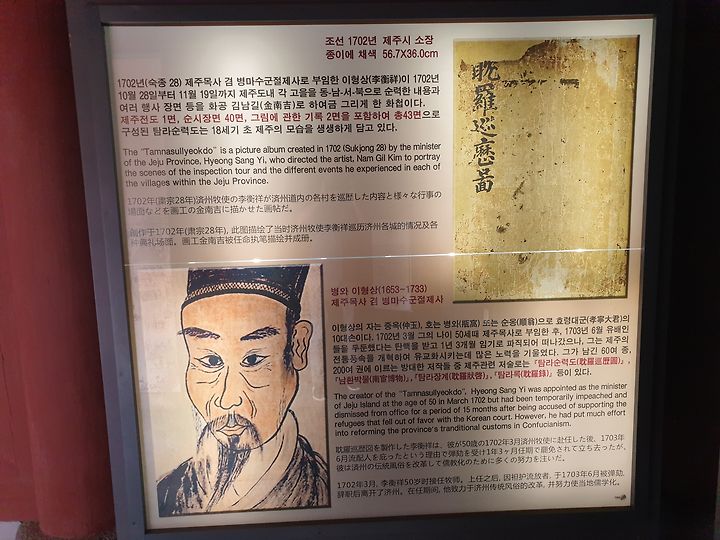 조선 1702년 제주시 소장
종이에 채색 56.7X36.0cm
1702년(숙종 28) 제주목사 겸 병마수군절제사로 부임한 이형상(李衡祥)이 1702년
10월 28일부터 11월 19일까지 제주도내 각 고을을 동·남·서·북으로 순력한 내용과
여러 행사 장면 등을 화공 김남길(金南吉)로 하여금 그리게 한 화첩이다.
제주전도 1면, 순시장면 40면, 그림에 관한 기록 2면을 포함하여 총43면으로
구성된 탐라순력도는 18세기 초 제주의 모습을 생생하게 담고 있다.
The "Tamnasullyeokdo" is a picture album created in 1702 (Sukjong 28) by the minister
of the Jeju Province, Hyeong Sang Yi, who directed the artist, Nam Gil Kim to portray
the scenes of the inspection tour and the different events he experienced in each of
the villages within the Jeju Province.
1702年(粛宗28年)済州牧使の李衡祥が済州道内の各村を巡歴した内容と様々な行事の
場面などを画工の金南吉に描かせた画帖だ。
創作于1702年(肃宗28年), 此图描绘了当时济州牧使李衡祥巡历济州各城的情况及各
种典礼场面。画工金南吉被任命执笔描绘并成册。
耽羅巡歷圖
병와 이형상(1653~1733)
제주목사 겸 병마수군절제사
이형상의 자는 중옥(仲玉), 호는 병와(甁窩) 또는 순옹(順翁)으로 효령대군(孝寧大君)의
10대손이다. 1702년 3월 그의 나이 50세때 제주목사로 부임한 후, 1703년 6월 유배인
들을 두둔했다는 탄핵을 받고 1년 3개월 임기로 파직되어 떠나갔으나, 그는 제주의
전통풍속을 개혁하여 유교화시키는데 많은 노력을 기울였다. 그가 남긴 60여 종,
200여 권에 이르는 방대한 저작들 중 제주관련 저술로는 『탐라순력도(耽羅巡歷圖)』,
『남환박물(南宦博物)』, 『탐라장계(耽羅狀啓)』, 『탐라록(耽羅錄)』 등이 있다.
The creator of the "Tamnasullyeokdo", Hyeong Sang Yi was appointed as the minister
of Jeju Island at the age of 50 in March 1702 but had been temporarily impeached and
dismissed from office for a period of 15 months after being accused of supporting the
refugees that fell out of favor with the Korean court. However, he had put much effort
into reforming the province's tranditional customs in Confucianism.
耽羅巡歴図を製作した李衡祥は、彼が50歳の1702年3月済州牧使に赴任した後、1703年
6月流配人を庇ったという理由で弾劾を受け1年3ヶ月任期で罷免されて立ち去ったが、
彼は済州の伝統風俗を改革して儒教化のために多くの努力を注いだ。
1702年3月, 李衡祥50岁时接任牧师。上任之后, 因袒护流放者, 于1703年6月被弹劾,
辞职后离开了济州。在任期间, 他致力于济州传统风俗的改革, 并努力使当地儒学化。